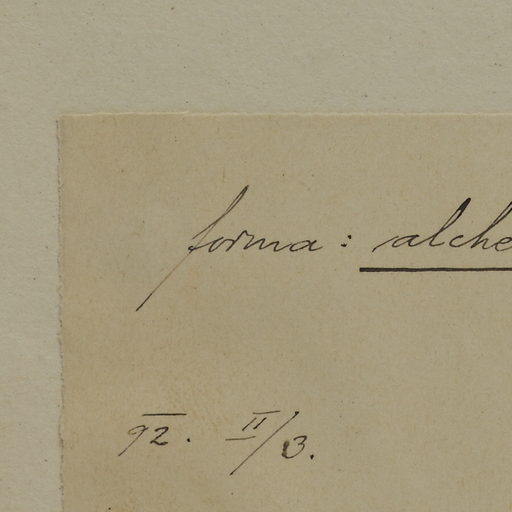 forma: alche
92. II/3.